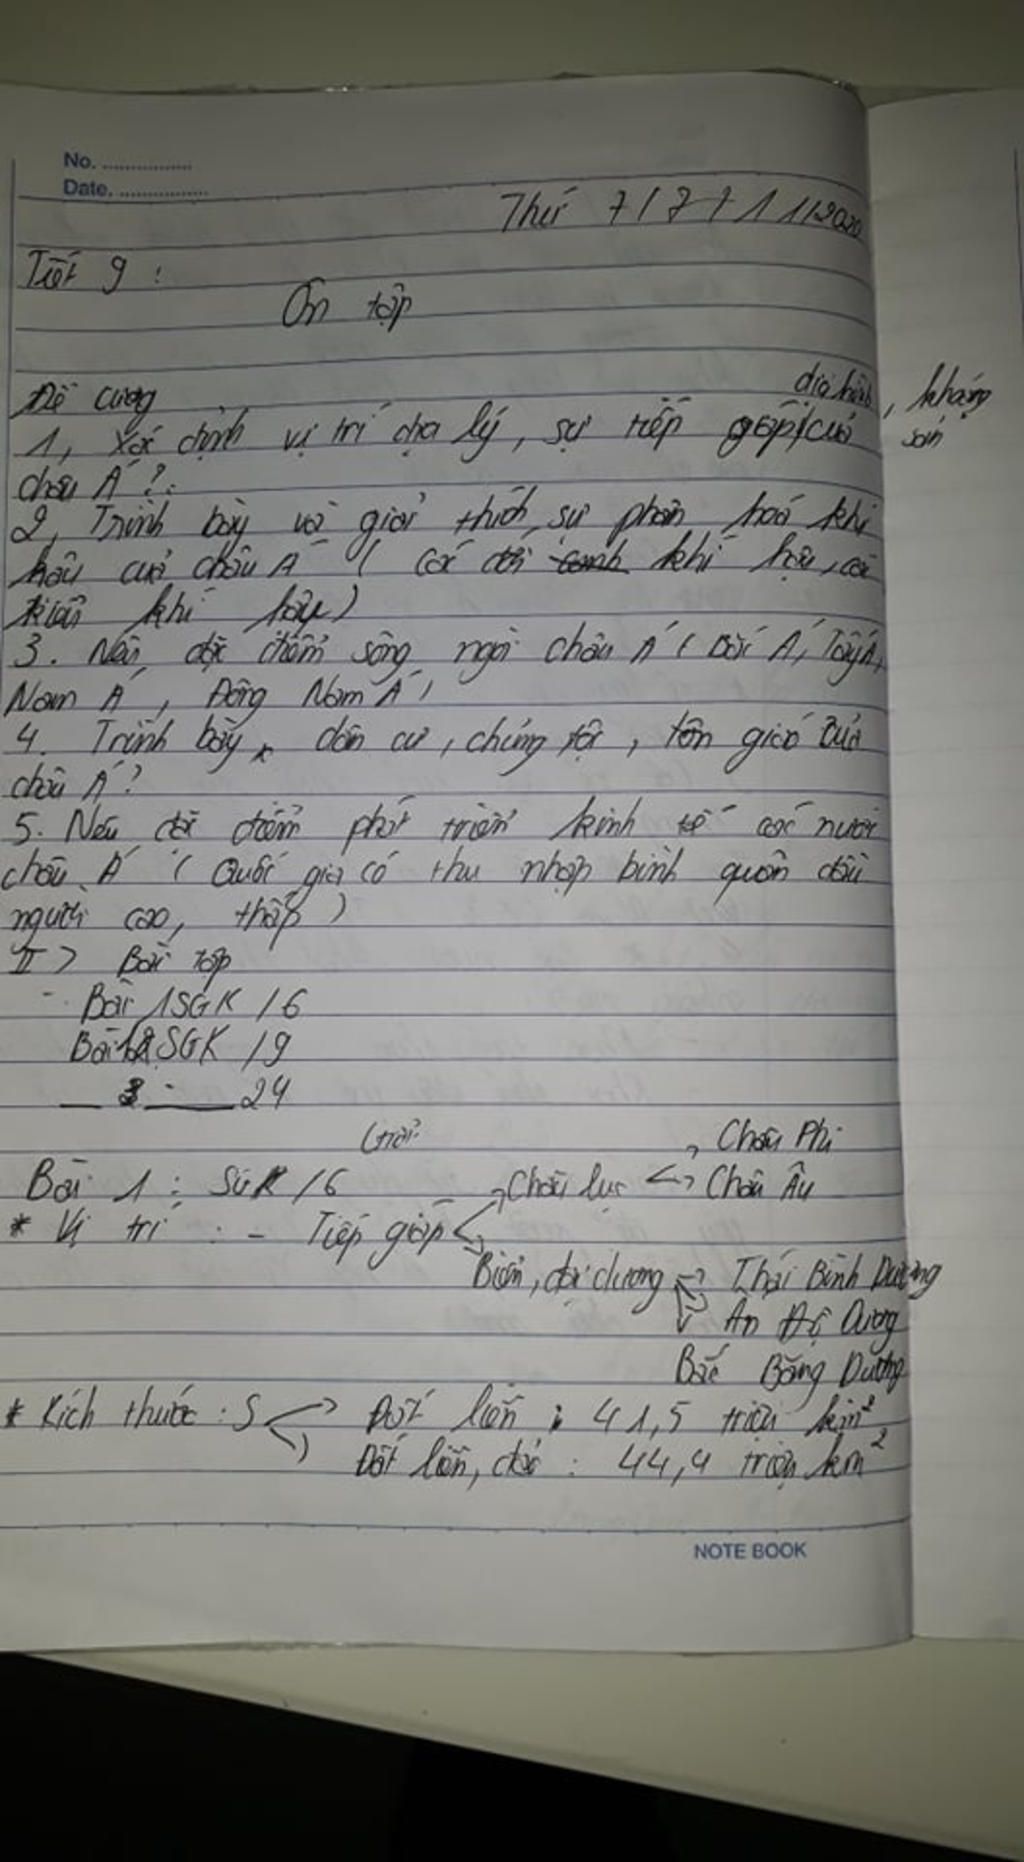 No. ................
Date. ................
Thứ 7/7/11/2020
Tiết 9 :
Ôn tập
Đề cương
địa hình, khoáng sản
1, Xác định vị trí địa lý, sự tiếp giáp, của
châu Á ?
2, Trình bày và giải thích sự phân hoá khí
hậu của châu Á ( các đới khí hậu, các
kiểu khí hậu)
3. Nêu đặc điểm sông ngòi châu Á ( Bắc Á, Tây Á,
Nam Á, Đông Nam Á)
4. Trình bày dân cư, chủng tộc, tôn giáo của
châu Á ?
5. Nêu đặc điểm phát triển kinh tế các nước
châu Á ( Quốc gia có thu nhập bình quân đầu
người cao, thấp )
II > Bài tập
- Bài 1 SGK / 6
Bài 1,2 SGK / 9
— 3 — 24
Giải
Châu Phi
Bài 1 : SGK / 6 Châu lục Châu Âu
* Vị trí : - Tiếp giáp
Biển, đại dương Thái Bình Dương
Ấn Độ Dương
Bắc Băng Dương
* Kích thước : S Đất liền : 41,5 triệu km²
Đất liền, đảo : 44,4 triệu km²
NOTE BOOK